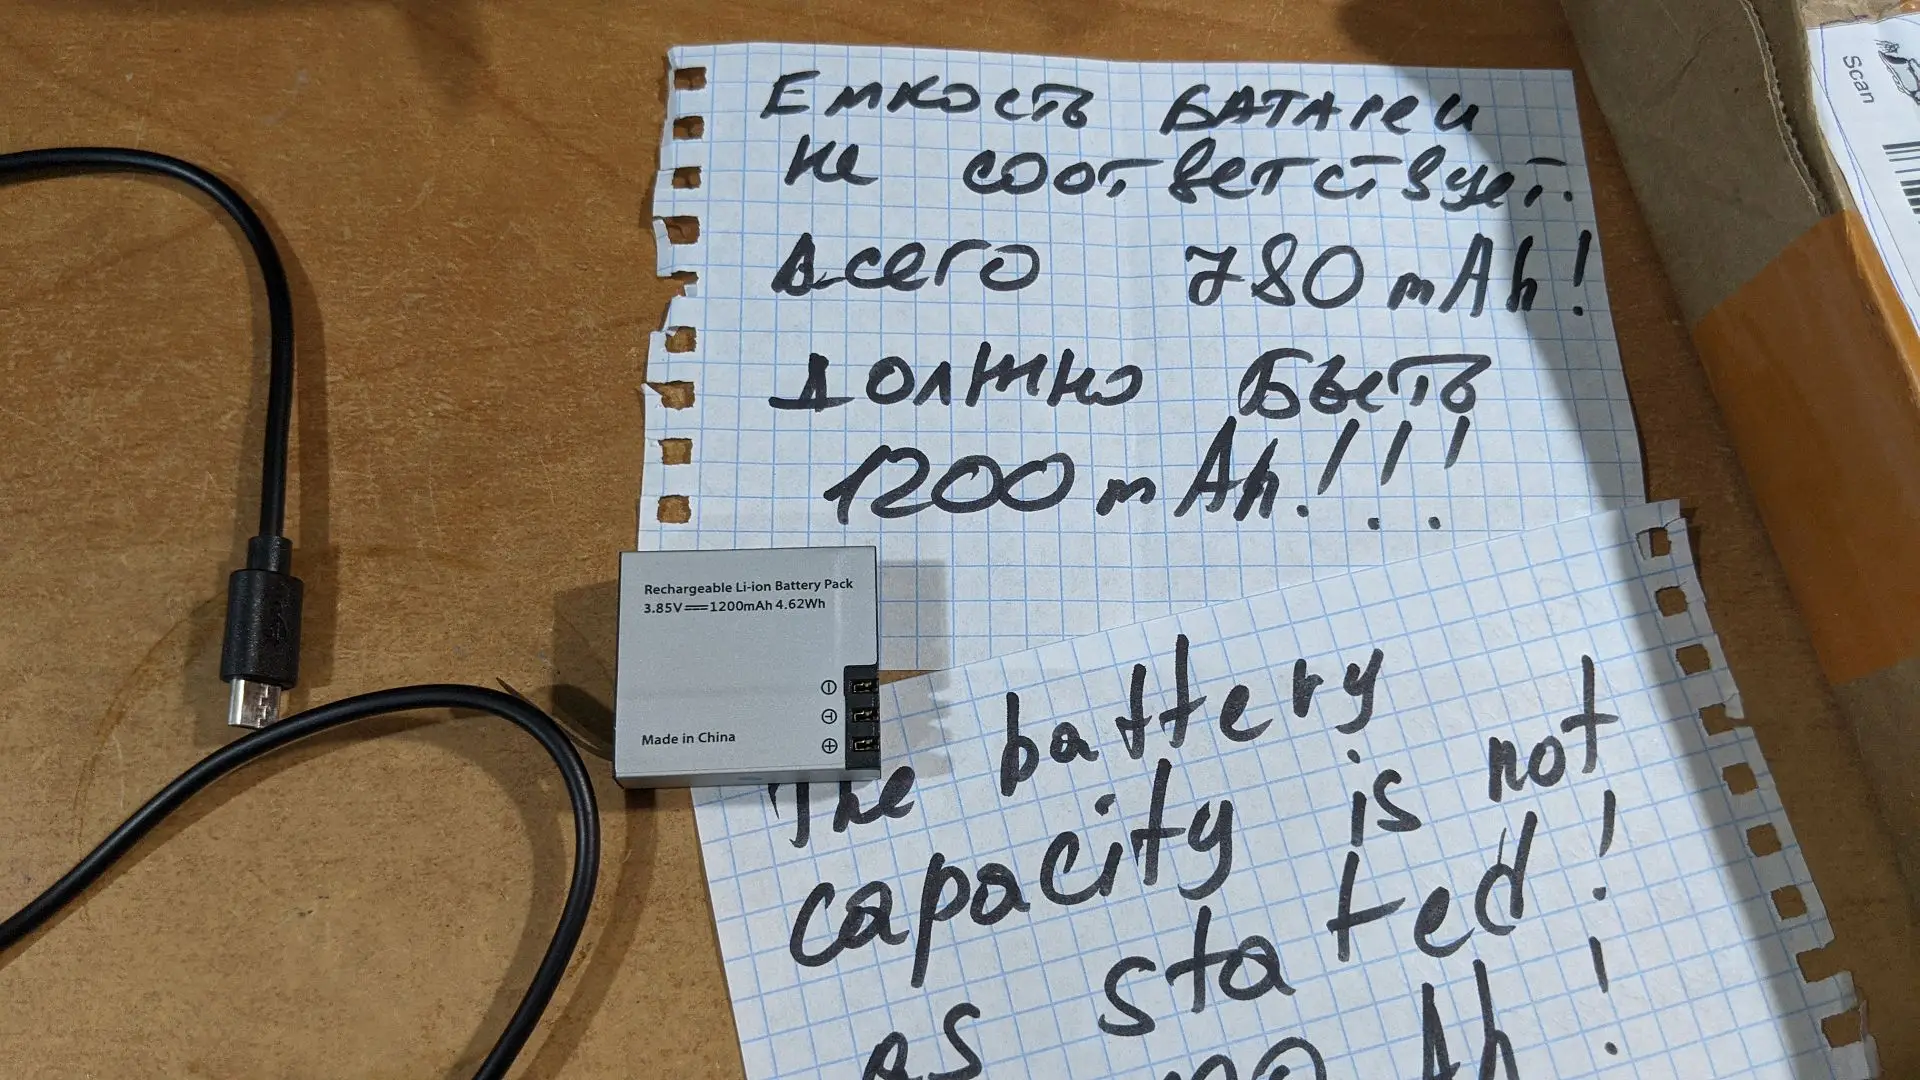 Емкость БАТАРеи
не соотВетстВует.
Всего 780 mAh!
Должно Быть
1200 mAh!!!
Rechargeable Li-ion Battery Pack
3.85V⎓1200mAh 4.62Wh
Made in China
The battery
capacity is not
as stated!
Ah!
Scan